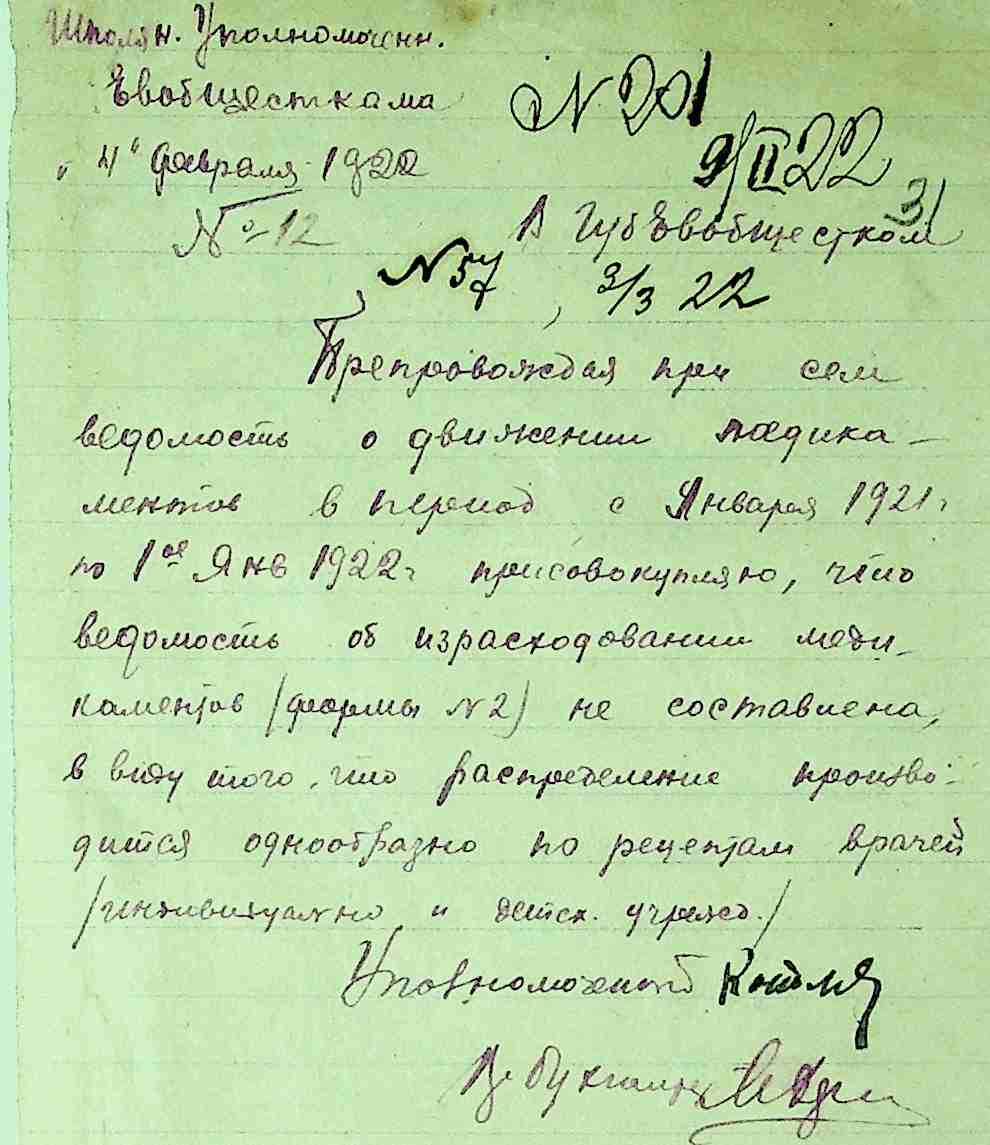 Шполян. Уполномоченн.
Евобщесткама
N 201
"4" февраля 1922
9/II 22
№ 12
В ГубЕвобщестком
3/
N 57, 3/3 22
Препровождая при сем
ведомость о движении медика-
ментов в период с Января 1921 г
по 1ое Янв 1922 г присовокупляю, что
ведомость об израсходовании меди-
каментов /формы N 2/ не составлена,
в виду того, что распределение произво-
дится однообразно по рецептам врачей
/индивидуально и детск. учрежд./
Уполномоченный